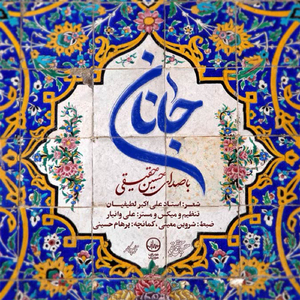 جانان
با صدای حسین حقیقی
شعر: استاد علی اکبر لطیفیان
تنظیم و میکس و مستر: علی وانیار
ضبط: شروین معینی ، کمانچه: پرهام حسینی